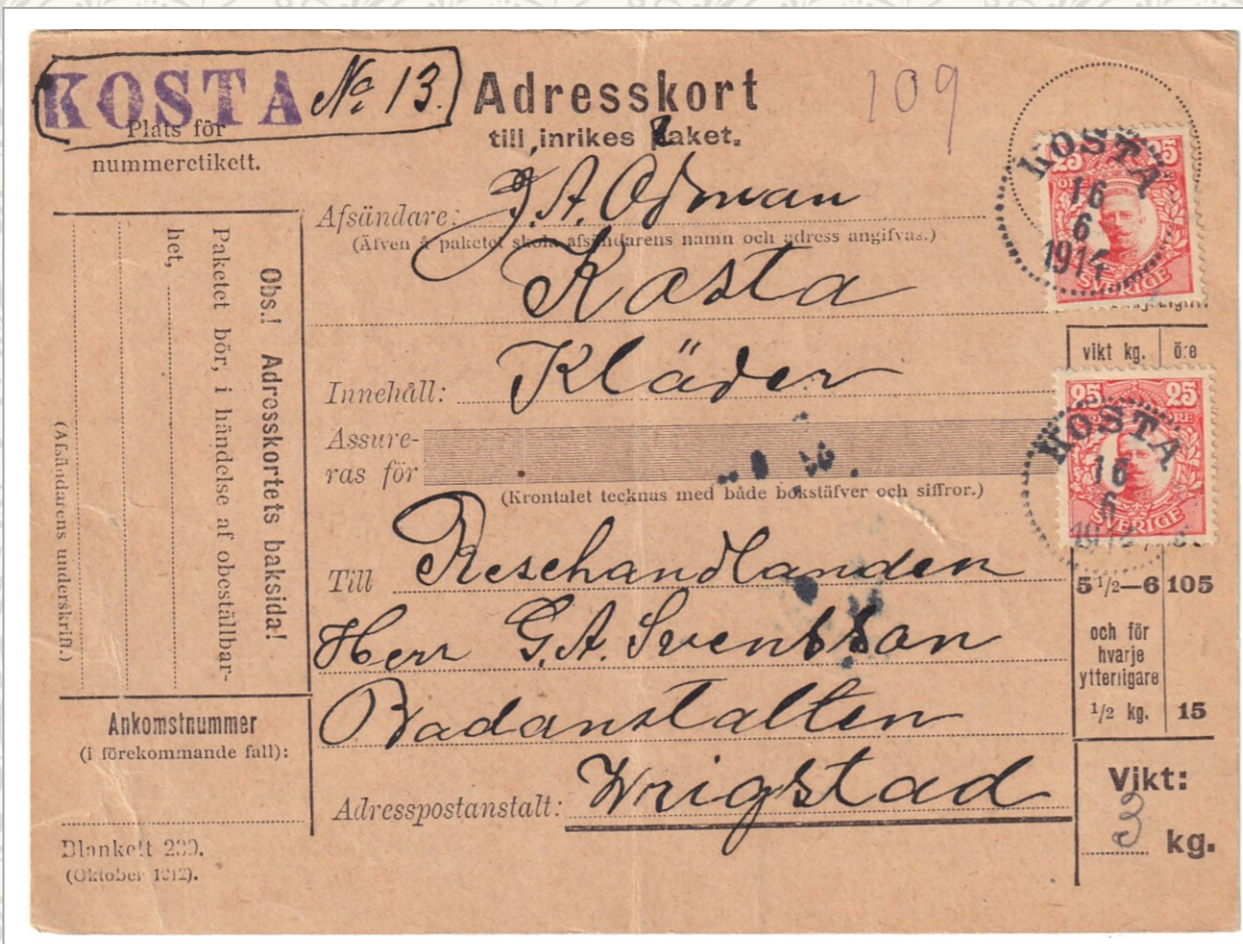 KOSTA № 13.
Plats för
nummeretikett.
Adresskort
till inrikes paket.
109
KOSTA
16
6
1914
25 25
SVERIGE
Afsändare: J. A. Ödman
(Äfven å paketet skola afsändarens namn och adress angifvas.)
Kosta
Innehåll: Kläder
Assure-
ras för
(Krontalet tecknas med både bokstäfver och siffror.)
Till Resehandlanden
Herr G. A. Svensson
Badanstalten
Adresspostanstalt: Wrigstad
Obs.! Adresskortets baksida!
Paketet bör, i händelse af obeställbar-
het,
(Afsändarens underskrift.)
Ankomstnummer
(i förekommande fall):
Blankett 230.
(Oktober 1912).
vikt kg. öre
25 25
ÖRE
SVERIGE
KOSTA
16
6
1914
5 1/2—6 105
och för
hvarje
ytterligare
1/2 kg. 15
Vikt:
3 kg.